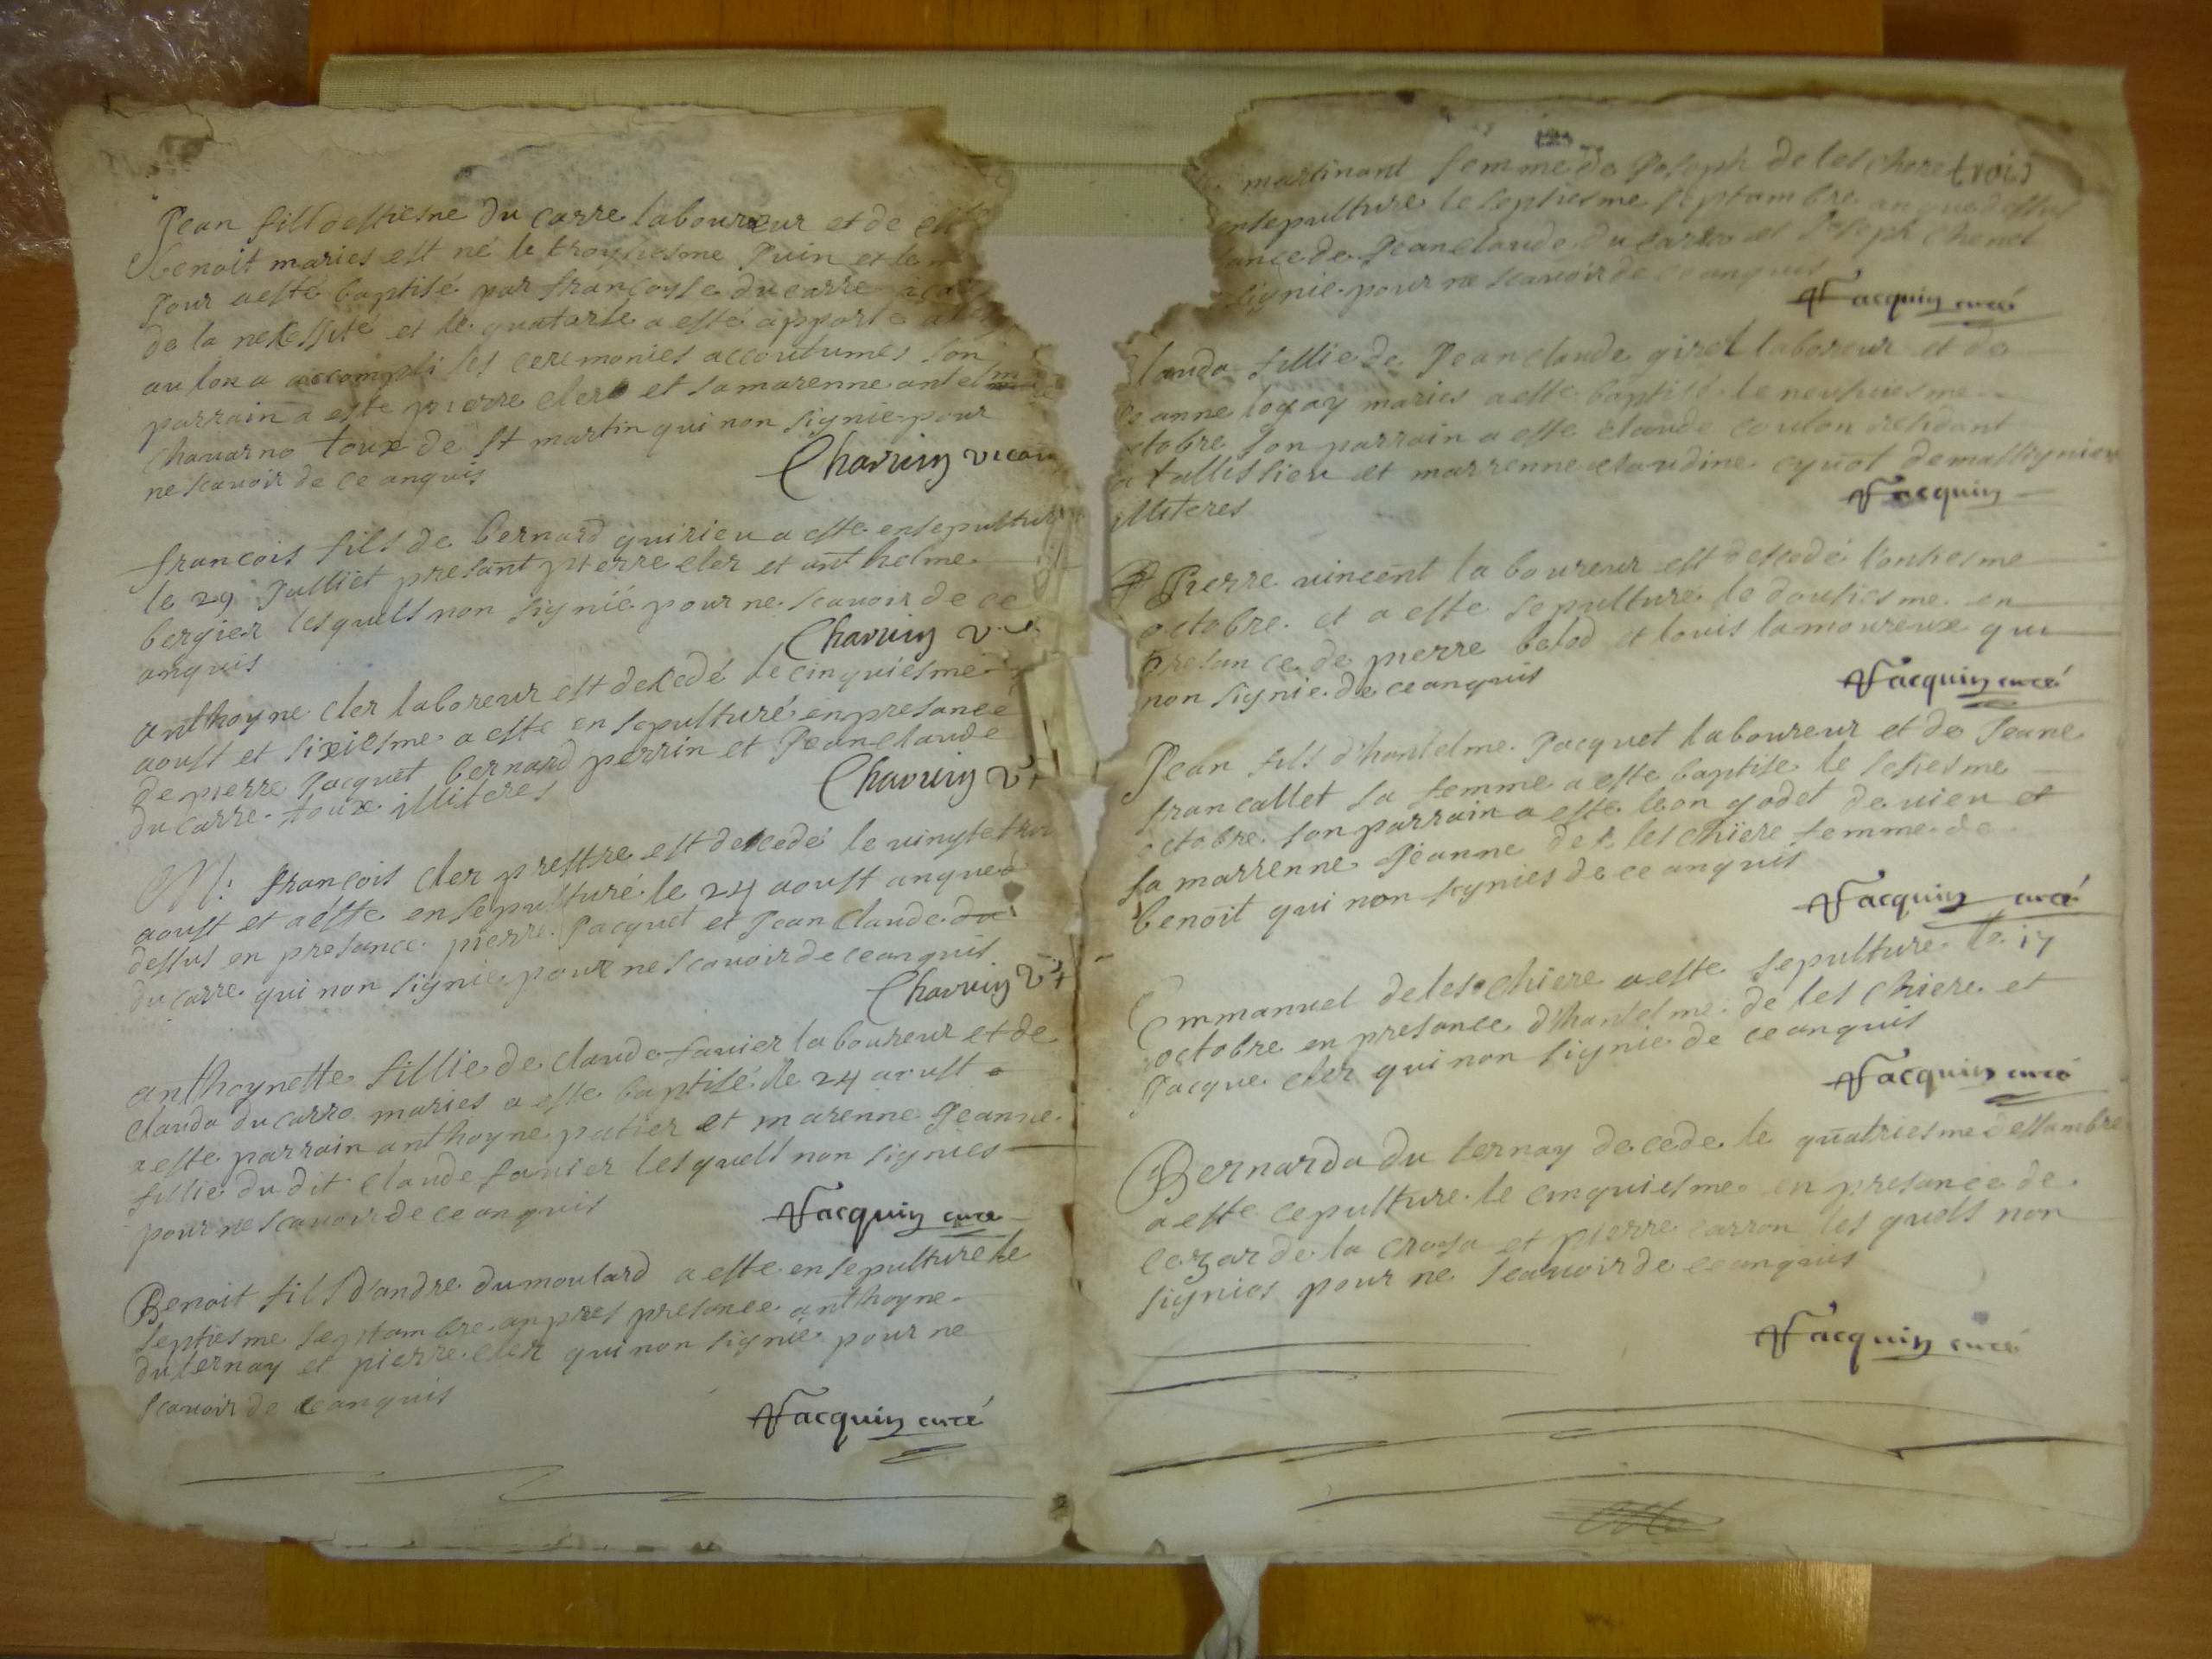 Jean fils destiesne du carre laboureur et de
benoit maries est né le troysiesme Juin et le
Jour a esté baptisé par francoyse du carre
de la necessité et le quatorse a esté apporté
au lon a accompli les ceremonies accoutumes son
parrain a este pierre cler et sa marenne antelme
chavarno toux de st martin qui non signie pour
ne scavoir de ce anquis
Charvin vicai
francois fils de bernard quirieu a esté ensepultur
le 29 Julliet presant pierre cler et anthelme
bergier lesquels non signié pour ne scavoir de ce
anquis
Charvin v
anthoyne cler laboreur est decedé le cinquiesme
aoust et sixiesme a esté en sepulturé en presance
de pierre Jacquet bernard perrin et Jeanclaude
du carre toux illiteres
Charvin v
Mr francois cler prestre est decedé le vingtetroi
aoust et a este en sepulturé le 24 aoust an que
dessus en presance pierre Jacquet et Jean Claude du
du carre qui non signie pour ne scavoir de ce anquis
Charvin v
anthoynette fillie de claude favier laboureur et de
clauda du carro maries a este baptisé le 24 aoust
a este parrain anthoyne patier et marenne Jeanne
fillie du dit claude favier lesquels non signies
pour ne scavoir de ce anquis
Jacquin curé
Benoit fils dandre dumoulard a este ensepulture le
septiesme septambre en presance anthoyne
du ternay et pierre cler qui non signié pour ne
scavoir de ce anquis
Jacquin curé
martinant femme de Joseph de leschere trois
ensepulture le septiesme septambre an que dessus
ance de Jeanclaude du carro et Joseph chenel
signie pour ne scavoir de ce anquis
Jacquin curé
lauda fillie de Jeanclaude girel laboreur et de
Jeanne logay maries a este baptisé le neufviesme
ctobre son parrain a este claude coulon residant
a tallissieu et marrenne claudine cynot de massignieu
illiteres
Jacquin
Pierre vincent laboureur est decedé lonsiesme
octobre et a este sepulturé le dousiesme en
presance de pierre belod et louis lamoureux qui
non signie de ce anquis
Jacquin curé
Jean fils d'hantelme Jacquet laboureur et de Jeane
francallet sa femme a este baptise le sesiesme
octobre son parrain a este leon godet de vieu et
sa marrenne Jeanne de leschiere femme de
benoit qui non signies de ce anquis
Jacquin curé
Emmanuel de leschiere a este sepulture le 17
octobre en presance d'hantelme de leschiere et
Jacque cler qui non signie de ce anquis
Jacquin curé
Bernarda du ternay decede le quatriesme dessambre
a este cepulture le cinquiesme en presance de
cezar de la crosa et pierre carron lesquels non
signies pour ne scavoir de ce anquis
Jacquin curé